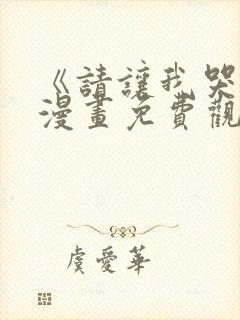 《請讓我哭
漫畫免費觀
虞愛華